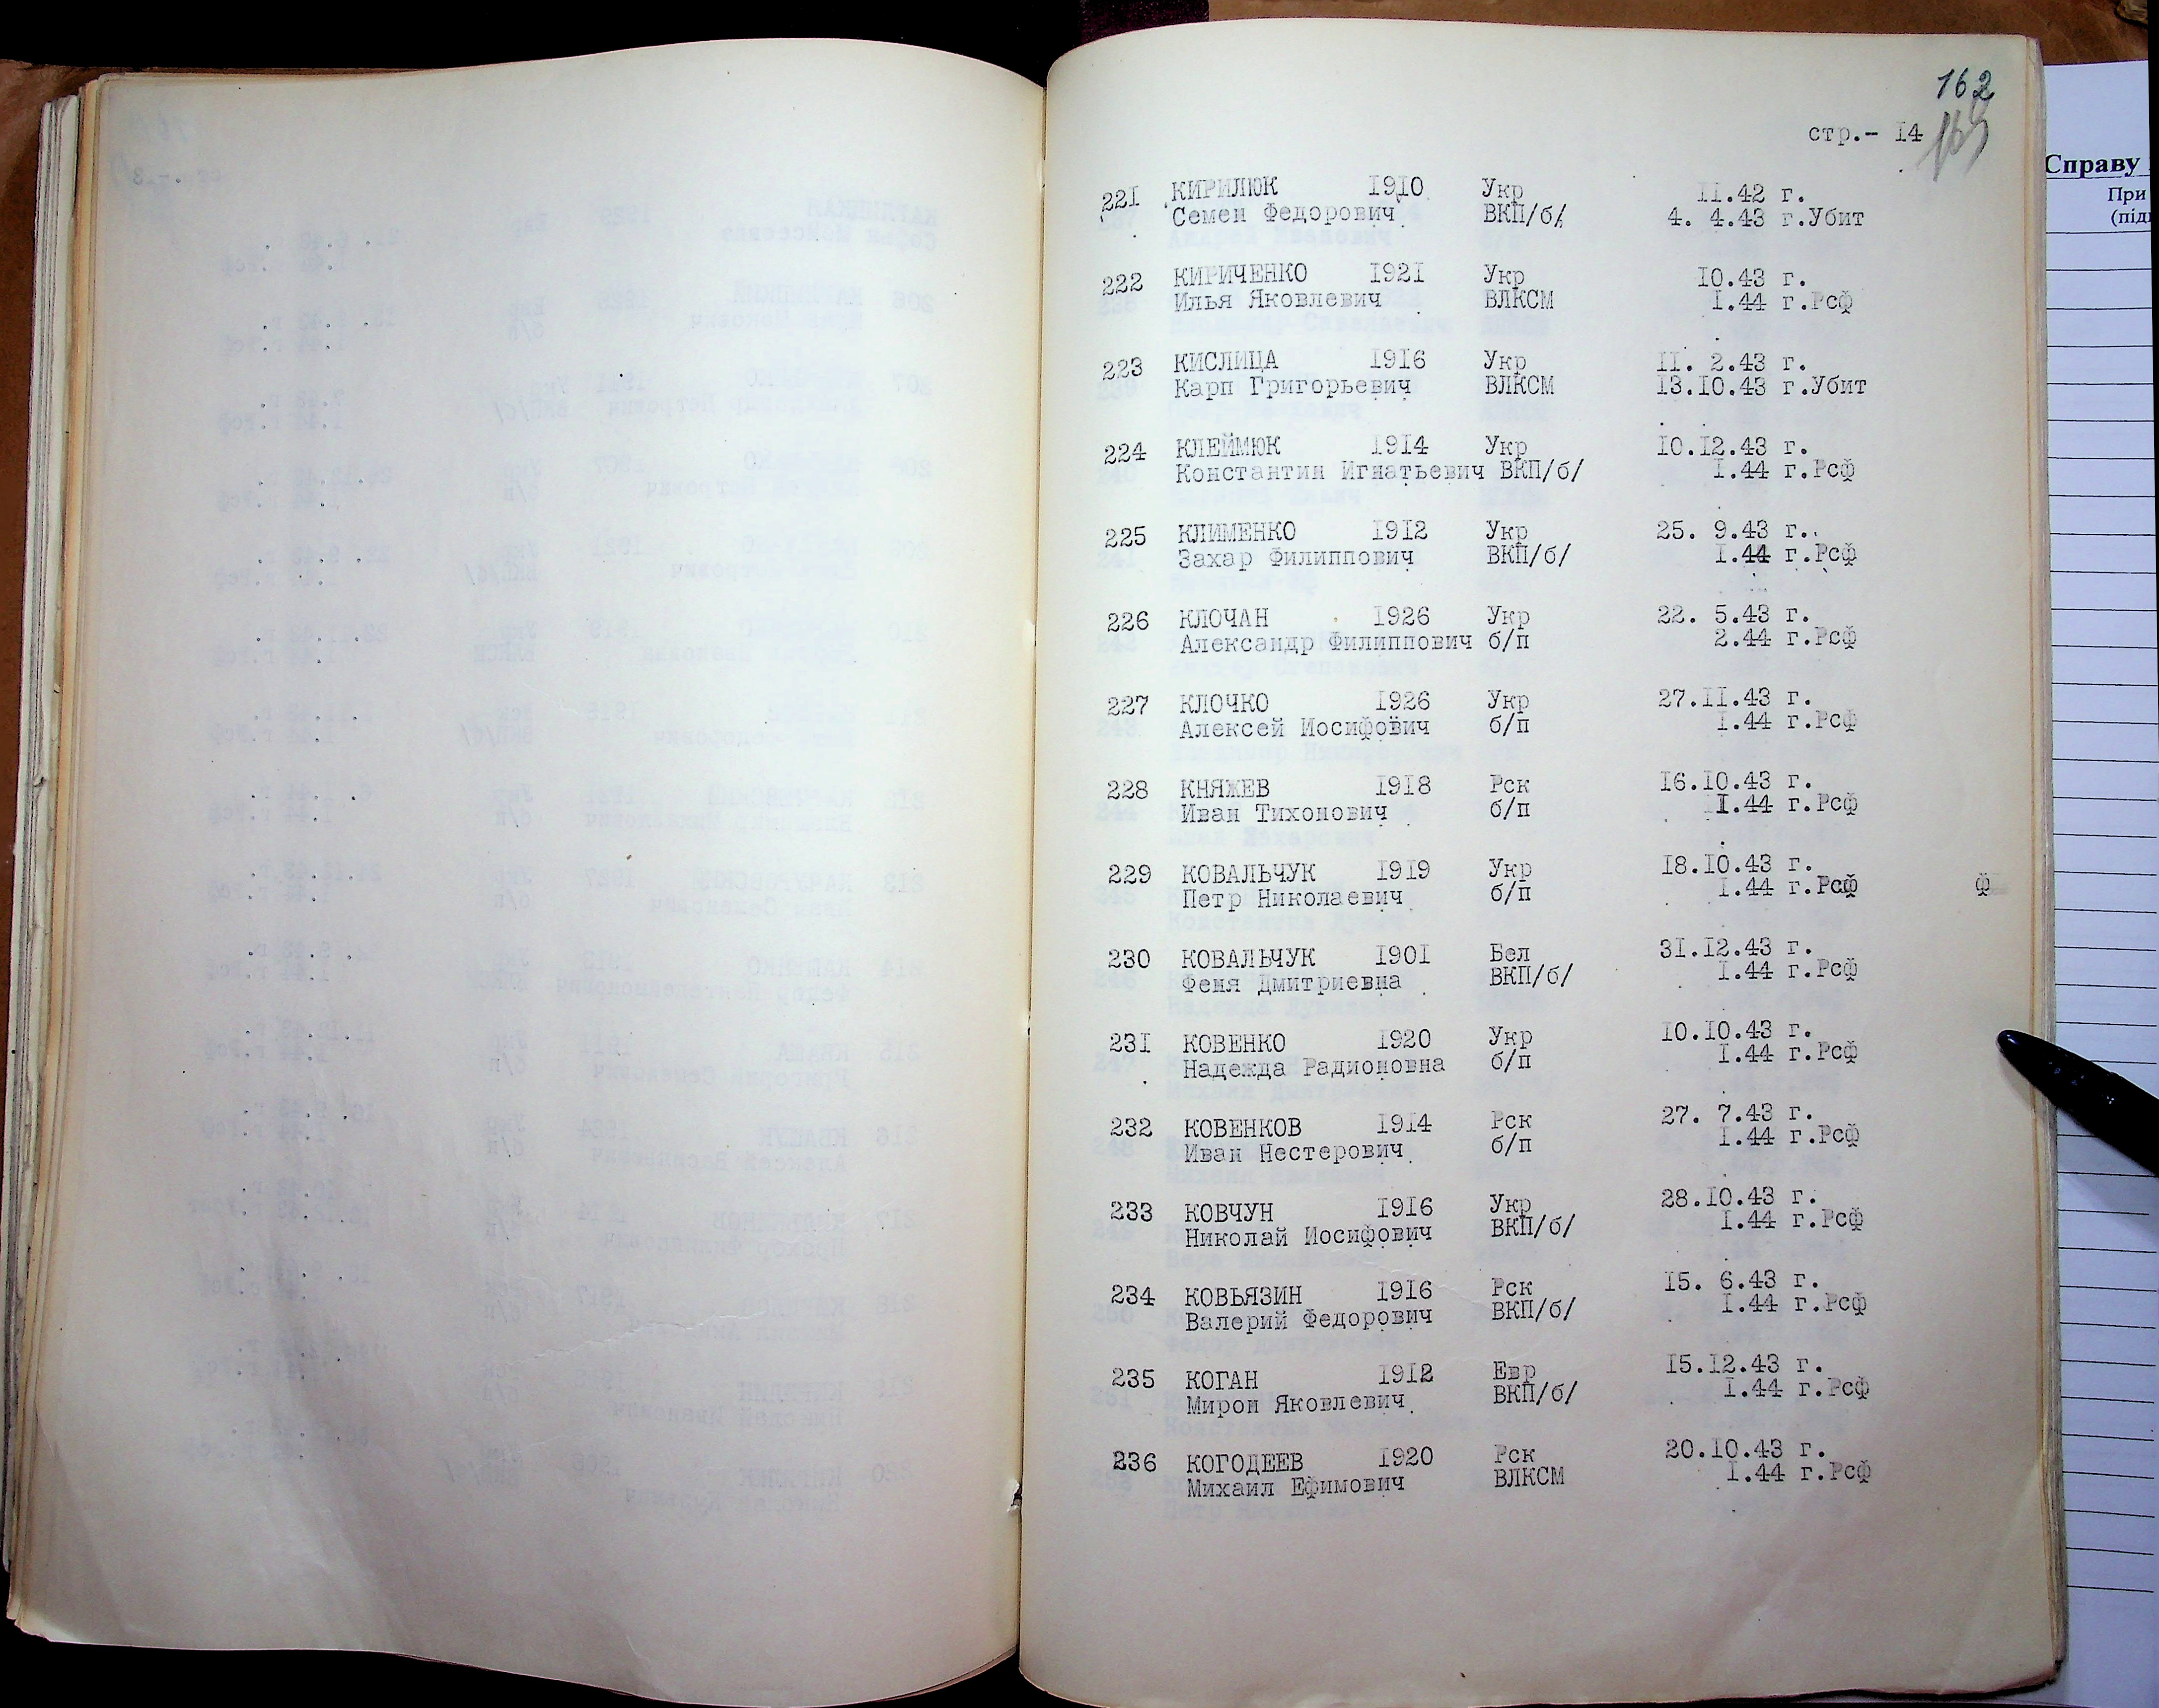 162
стр.- I4
Справу
При
(підп
22I КИРИЛЮК I9I0 Укр II.42 г.
Семен Федорович ВКП/б/ 4. 4.43 г.Убит
222 КИРИЧЕНКО I92I Укр I0.43 г.
Илья Яковлевич ВЛКСМ I.44 г.Рсф
223 КИСЛИЦА I9I6 Укр II. 2.43 г.
Карп Григорьевич ВЛКСМ I3.I0.43 г.Убит
224 КЛЕЙМЮК I9I4 Укр I0.I2.43 г.
Константин Игнатьевич ВКП/б/ I.44 г.Рсф
225 КЛИМЕНКО I9I2 Укр 25. 9.43 г.
Захар Филиппович ВКП/б/ I.44 г.Рсф
226 КЛОЧАН I926 Укр 22. 5.43 г.
Александр Филиппович б/п 2.44 г.Рсф
227 КЛОЧКО I926 Укр 27.II.43 г.
Алексей Иосифович б/п I.44 г.Рсф
228 КНЯЖЕВ I9I8 Рск I6.I0.43 г.
Иван Тихонович б/п I.44 г.Рсф
229 КОВАЛЬЧУК I9I9 Укр I8.I0.43 г.
Петр Николаевич б/п I.44 г.Рсф ф
230 КОВАЛЬЧУК I90I Бел 3I.I2.43 г.
Феня Дмитриевна ВКП/б/ I.44 г.Рсф
23I КОВЕНКО I920 Укр I0.I0.43 г.
Надежда Радионовна б/п I.44 г.Рсф
232 КОВЕНКОВ I9I4 Рск 27. 7.43 г.
Иван Нестерович б/п I.44 г.Рсф
233 КОВЧУН I9I6 Укр 28.I0.43 г.
Николай Иосифович ВКП/б/ I.44 г.Рсф
234 КОВЬЯЗИН I9I6 Рск I5. 6.43 г.
Валерий Федорович ВКП/б/ I.44 г.Рсф
235 КОГАН I9I2 Евр I5.I2.43 г.
Мирон Яковлевич ВКП/б/ I.44 г.Рсф
236 КОГОДЕЕВ I920 Рск 20.I0.43 г.
Михаил Ефимович ВЛКСМ I.44 г.Рсф